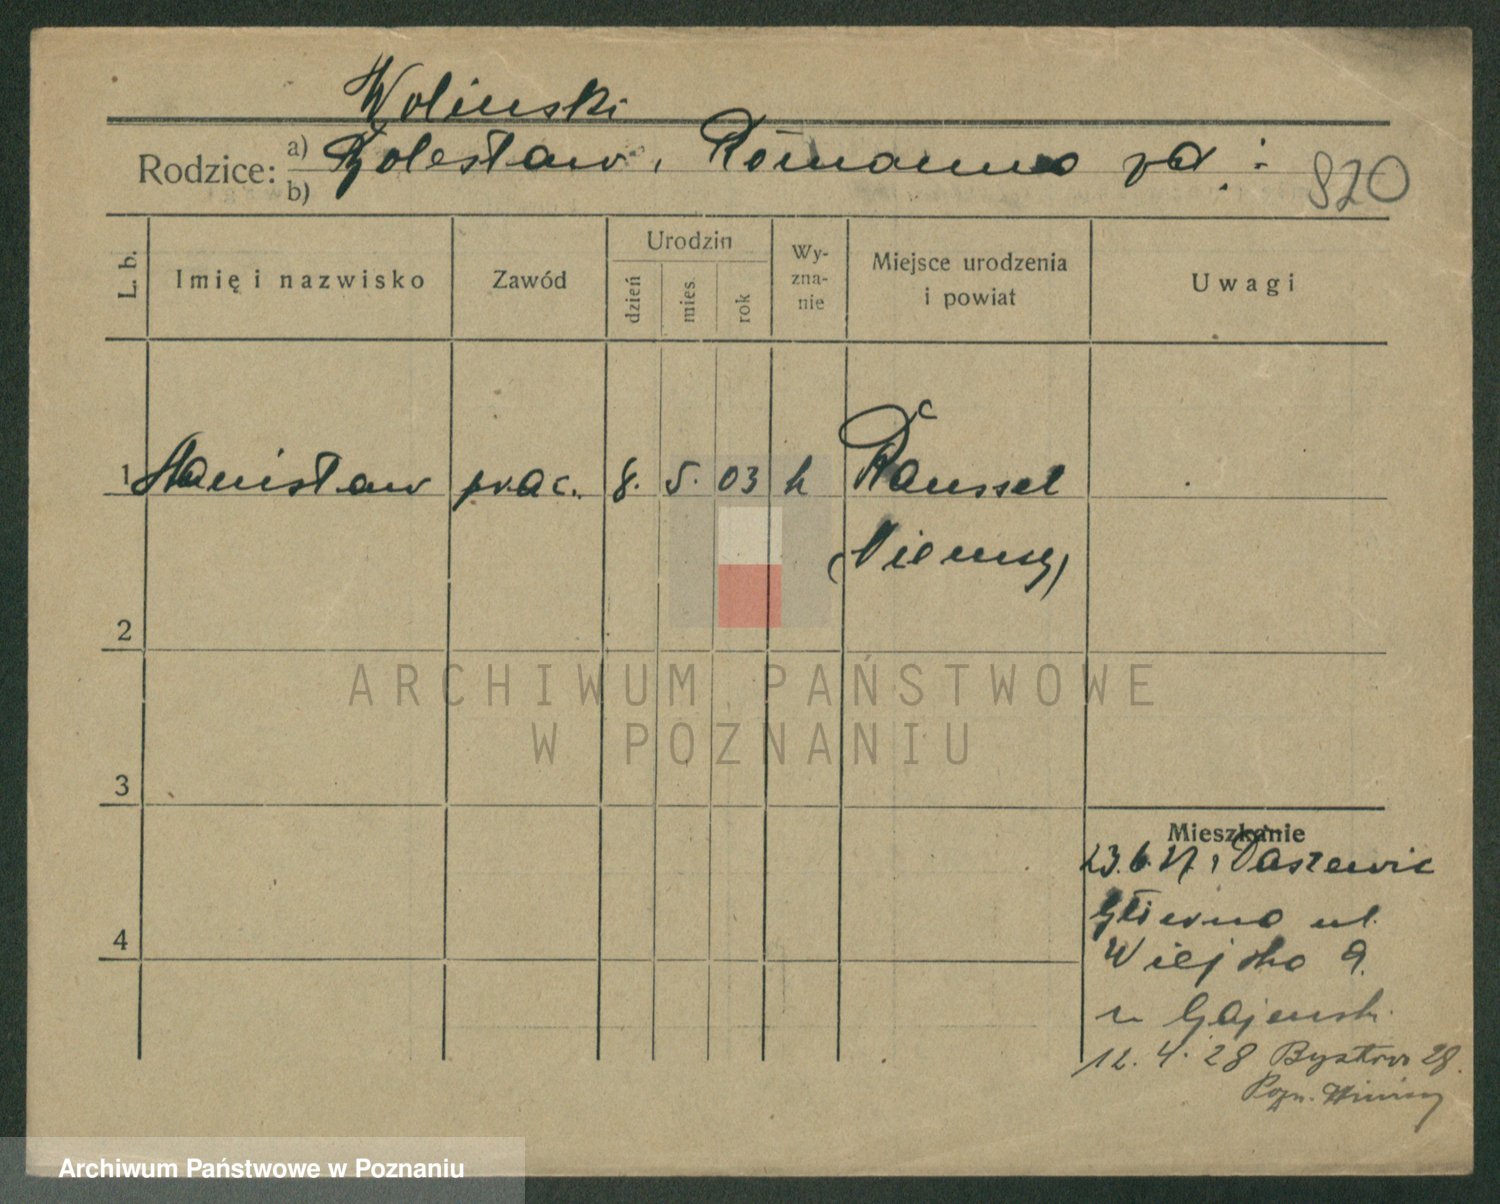 Wolinski
Rodzice: a) Bolesław, Romanna
b)
820
L. b.
Imię i nazwisko
Zawód
Urodzin
dzień
mies.
rok
Wy-
zna-
nie
Miejsce urodzenia
i powiat
Uwagi
1 Stanisław prac. 8. 5. 03 k Raussel
(Niemcy)
2
3
4
Mieszkanie
23.6.27. z Daszewic
Główno ul.
Wiejska 9.
u Gajewsk.
12. 4. 28 Bystra 28.
Pozn.
ARCHIWUM PAŃSTWOWE
W POZNANIU
Archiwum Państwowe w Poznaniu